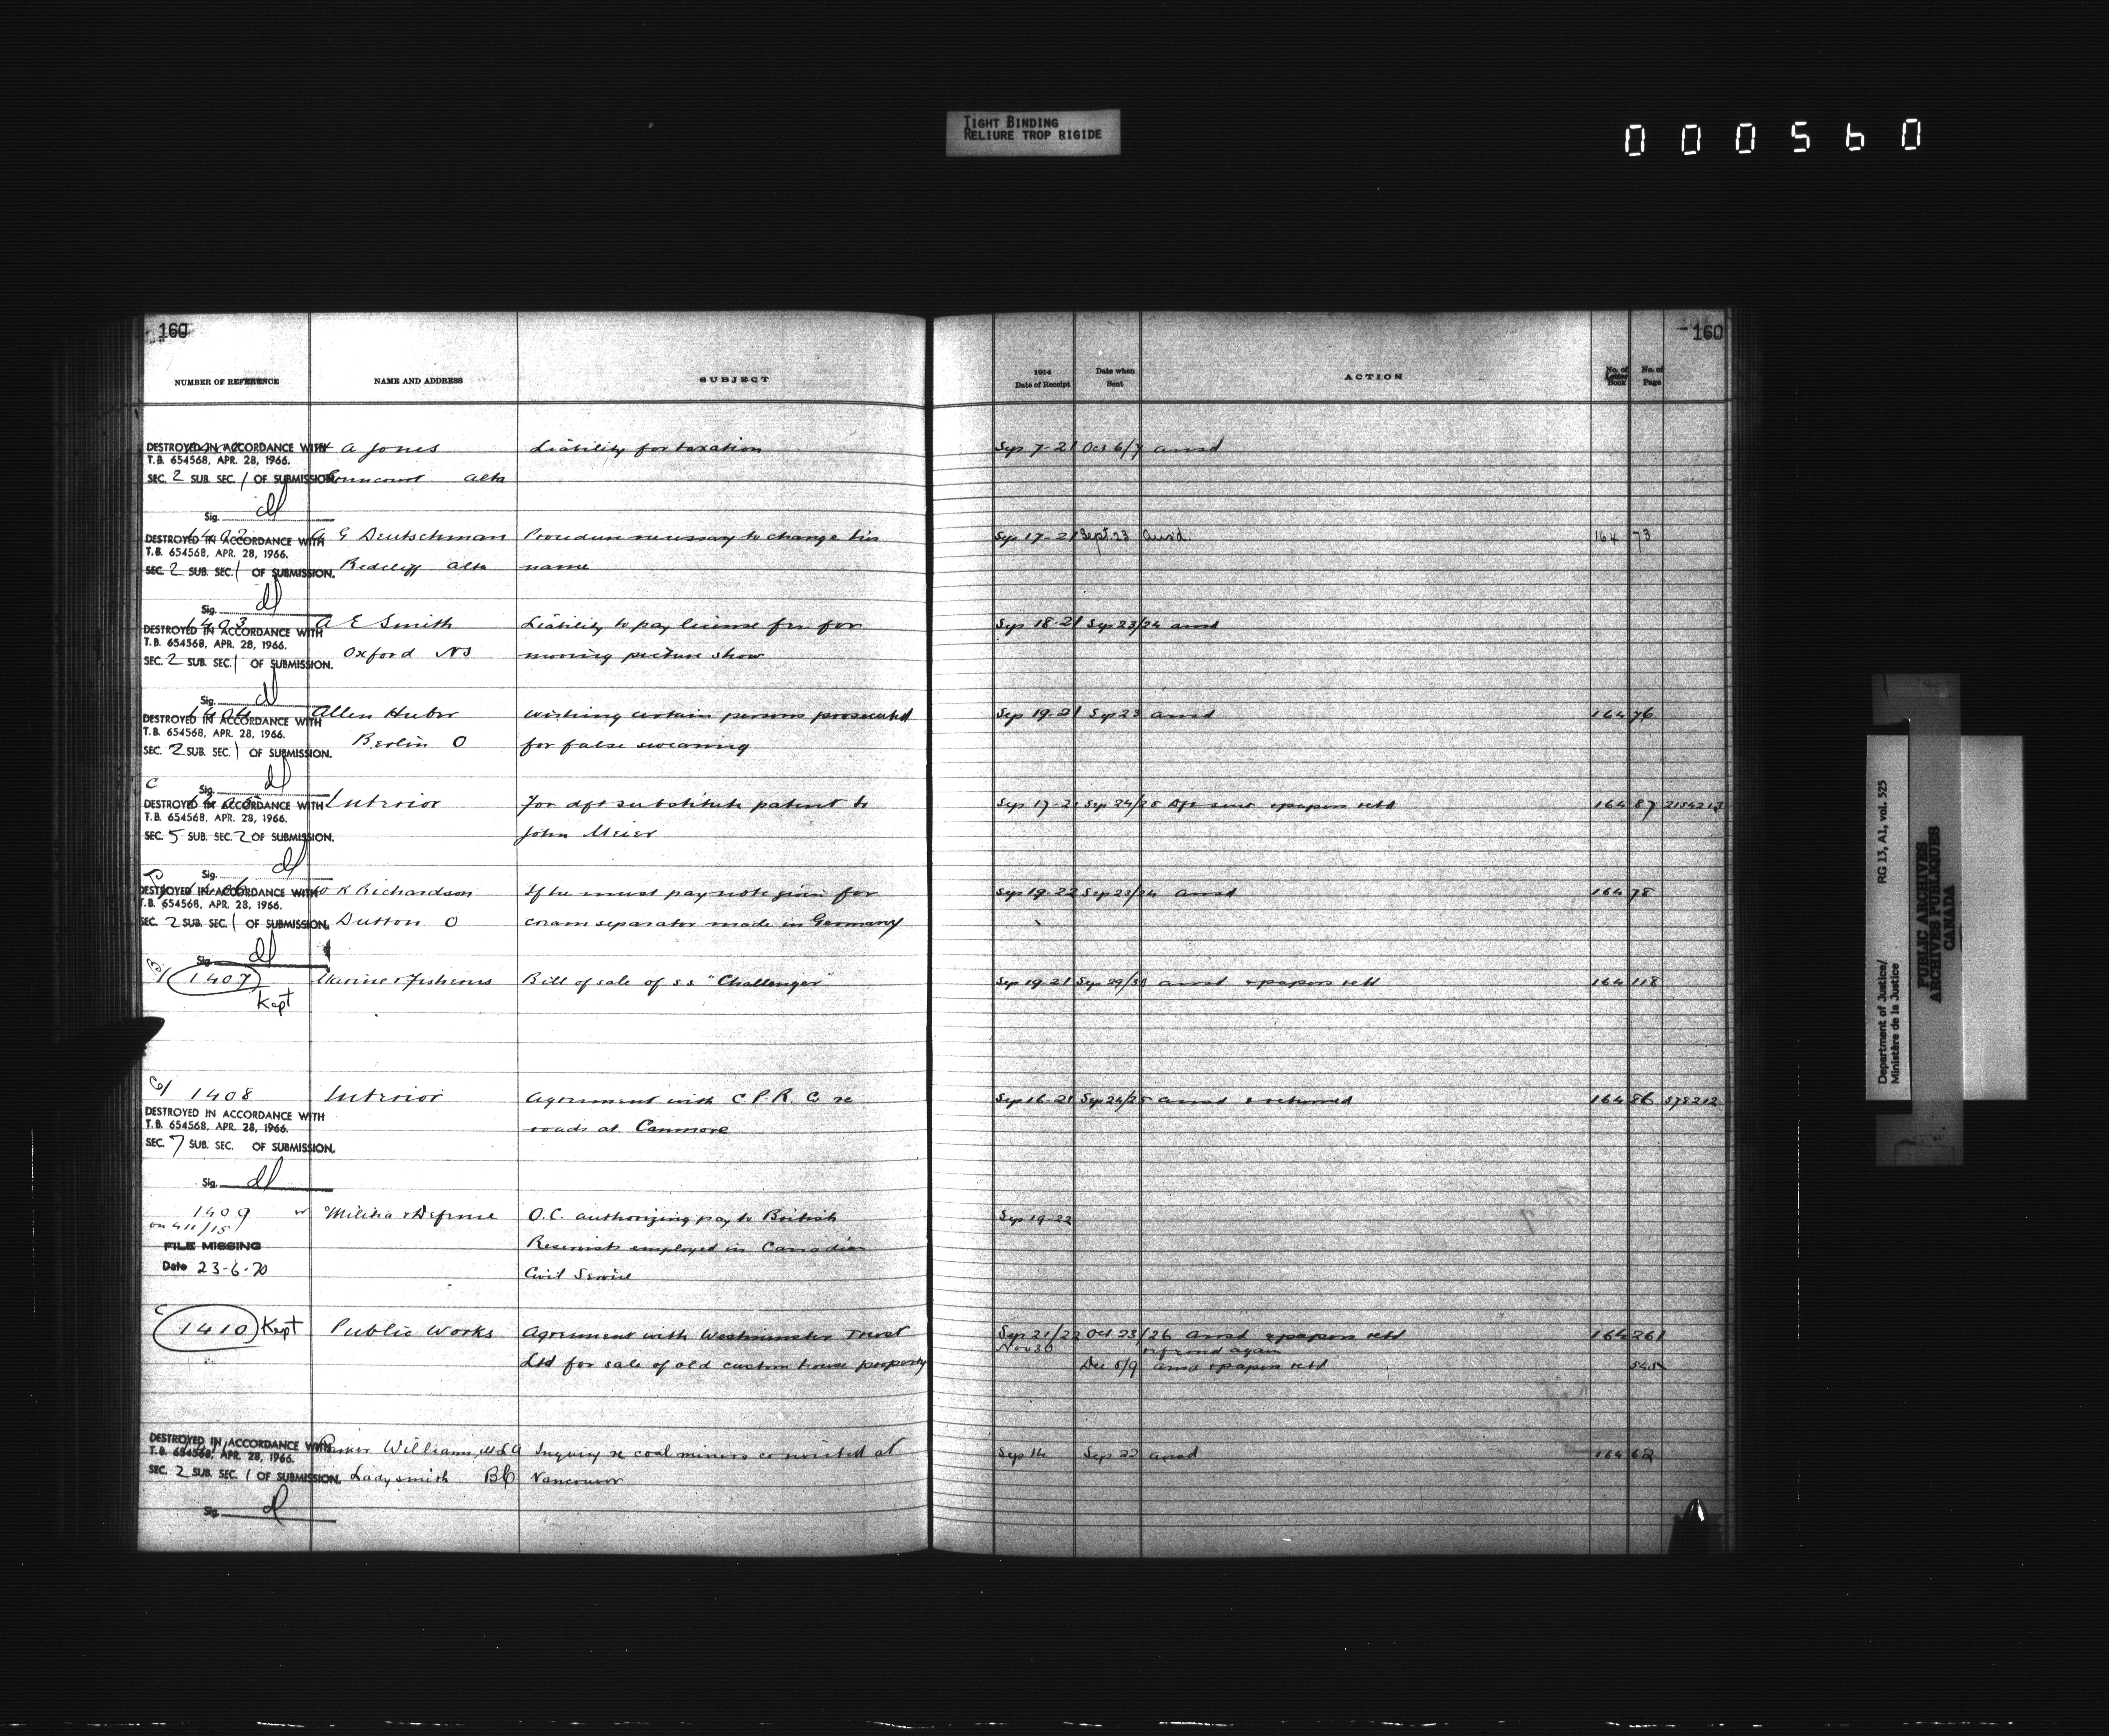 TIGHT BINDING
RELIURE TROP RIGIDE
000560
160
160
NUMBER OF REFERENCE NAME AND ADDRESS SUBJECT 1914 Date of Receipt Date when Sent ACTION No. of Letter Book No. of Page
DESTROYED IN ACCORDANCE WITH A Jones Liability for taxation Sep 7-21 Oct 6/7 ansd
T.B. 654568, APR. 28, 1966.
SEC. 2 SUB. SEC. 1 OF SUBMISSION. Alta
Sig. dl
DESTROYED IN ACCORDANCE WITH G Deutschman Procedure necessary to change his Sep 17-21 Sept. 23 Ansd. 164 73
T.B. 654568, APR. 28, 1966.
SEC. 2 SUB. SEC. 1 OF SUBMISSION. Redcliff Alta name
Sig. dl
1403 A E Smith Liability to pay license fee for Sep 18-21 Sep 23/24 ansd
DESTROYED IN ACCORDANCE WITH
T.B. 654568, APR. 28, 1966.
SEC. 2 SUB. SEC. 1 OF SUBMISSION. Oxford NS moving picture show
Sig. dl
1404 Allen Huber Wishing certain persons prosecuted Sep 19-21 Sep 23 ansd 164 76
DESTROYED IN ACCORDANCE WITH
T.B. 654568, APR. 28, 1966.
SEC. 2 SUB. SEC. 1 OF SUBMISSION. Berlin O for false swearing
C Sig. dl
DESTROYED IN ACCORDANCE WITH Interior For dft substitute patent to Sep 17-21 Sep 24/25 Dft sent & papers retd 164 87 2154213
T.B. 654568, APR. 28, 1966.
SEC. 5 SUB. SEC. 2 OF SUBMISSION. John Meier
Sig. dl
DESTROYED IN ACCORDANCE WITH R Richardson If he must pay note given for Sep 19-22 Sep 23/24 ansd 164 78
T.B. 654568, APR. 28, 1966.
SEC. 2 SUB. SEC. 1 OF SUBMISSION. Dutton O cream separator made in Germany
Sig. dl
1407 Marine & Fisheries Bill of sale of s.s "Challenger" Sep 19-21 Sep 29/30 ansd & papers retd 164 118
Kept
1408 Interior Agreement with C.P.R. Co re Sep 16-21 Sep 24/25 ansd & returned 164 86 578212
DESTROYED IN ACCORDANCE WITH
T.B. 654568, APR. 28, 1966. roads at Canmore
SEC. 7 SUB. SEC. OF SUBMISSION.
Sig. dl
1409 Militia & Defence O.C. authorizing pay to British Sep 19-22
on 411/15
FILE MISSING Reservists employed in Canadian
Date 23-6-70 Civil Service
C
1410 Kept Public Works Agreement with Westminster Trust Sep 21/22 Oct 23/26 ansd & papers retd 164 261
Nov 30 referred again
Ltd for sale of old custom house property Dec 8/9 ansd & papers retd 545
DESTROYED IN ACCORDANCE WITH Parker Williams, MLA Inquiry re coal miners convicted at Sep 14 Sep 22 ansd 164 62
T.B. 654568, APR. 28, 1966.
SEC. 2 SUB. SEC. 1 OF SUBMISSION. Ladysmith BC Vancouver
Sig. dl
Department of Justice/ RG 13, A1, vol. 525
Ministère de la Justice
PUBLIC ARCHIVES
ARCHIVES PUBLIQUES
CANADA